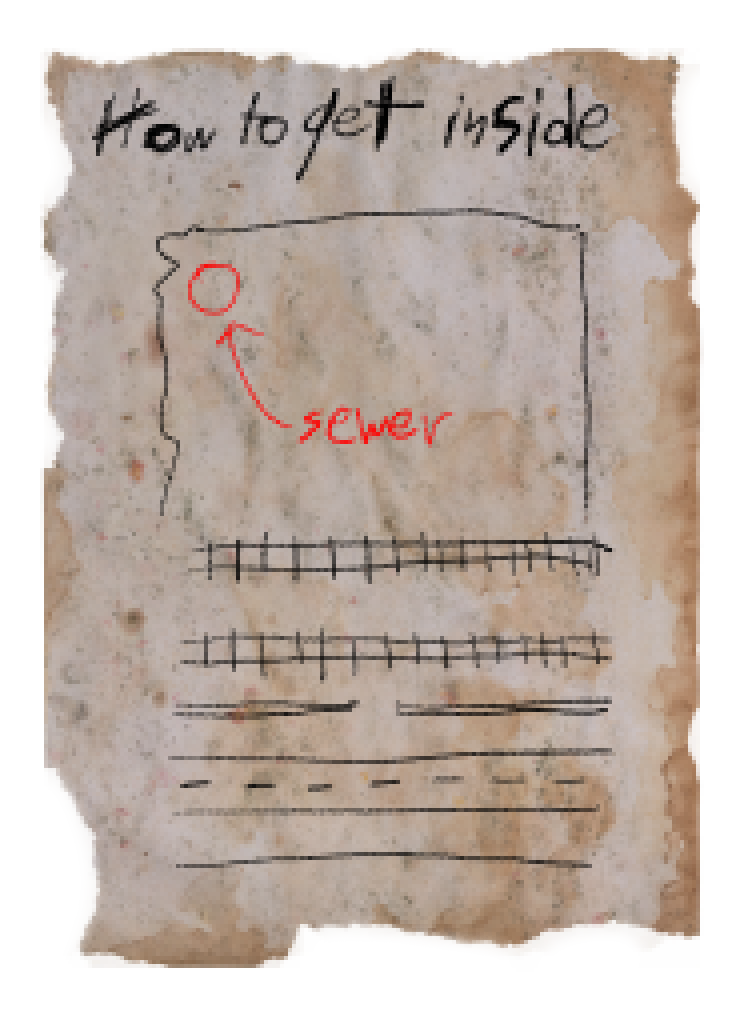 How to get inside
sewer